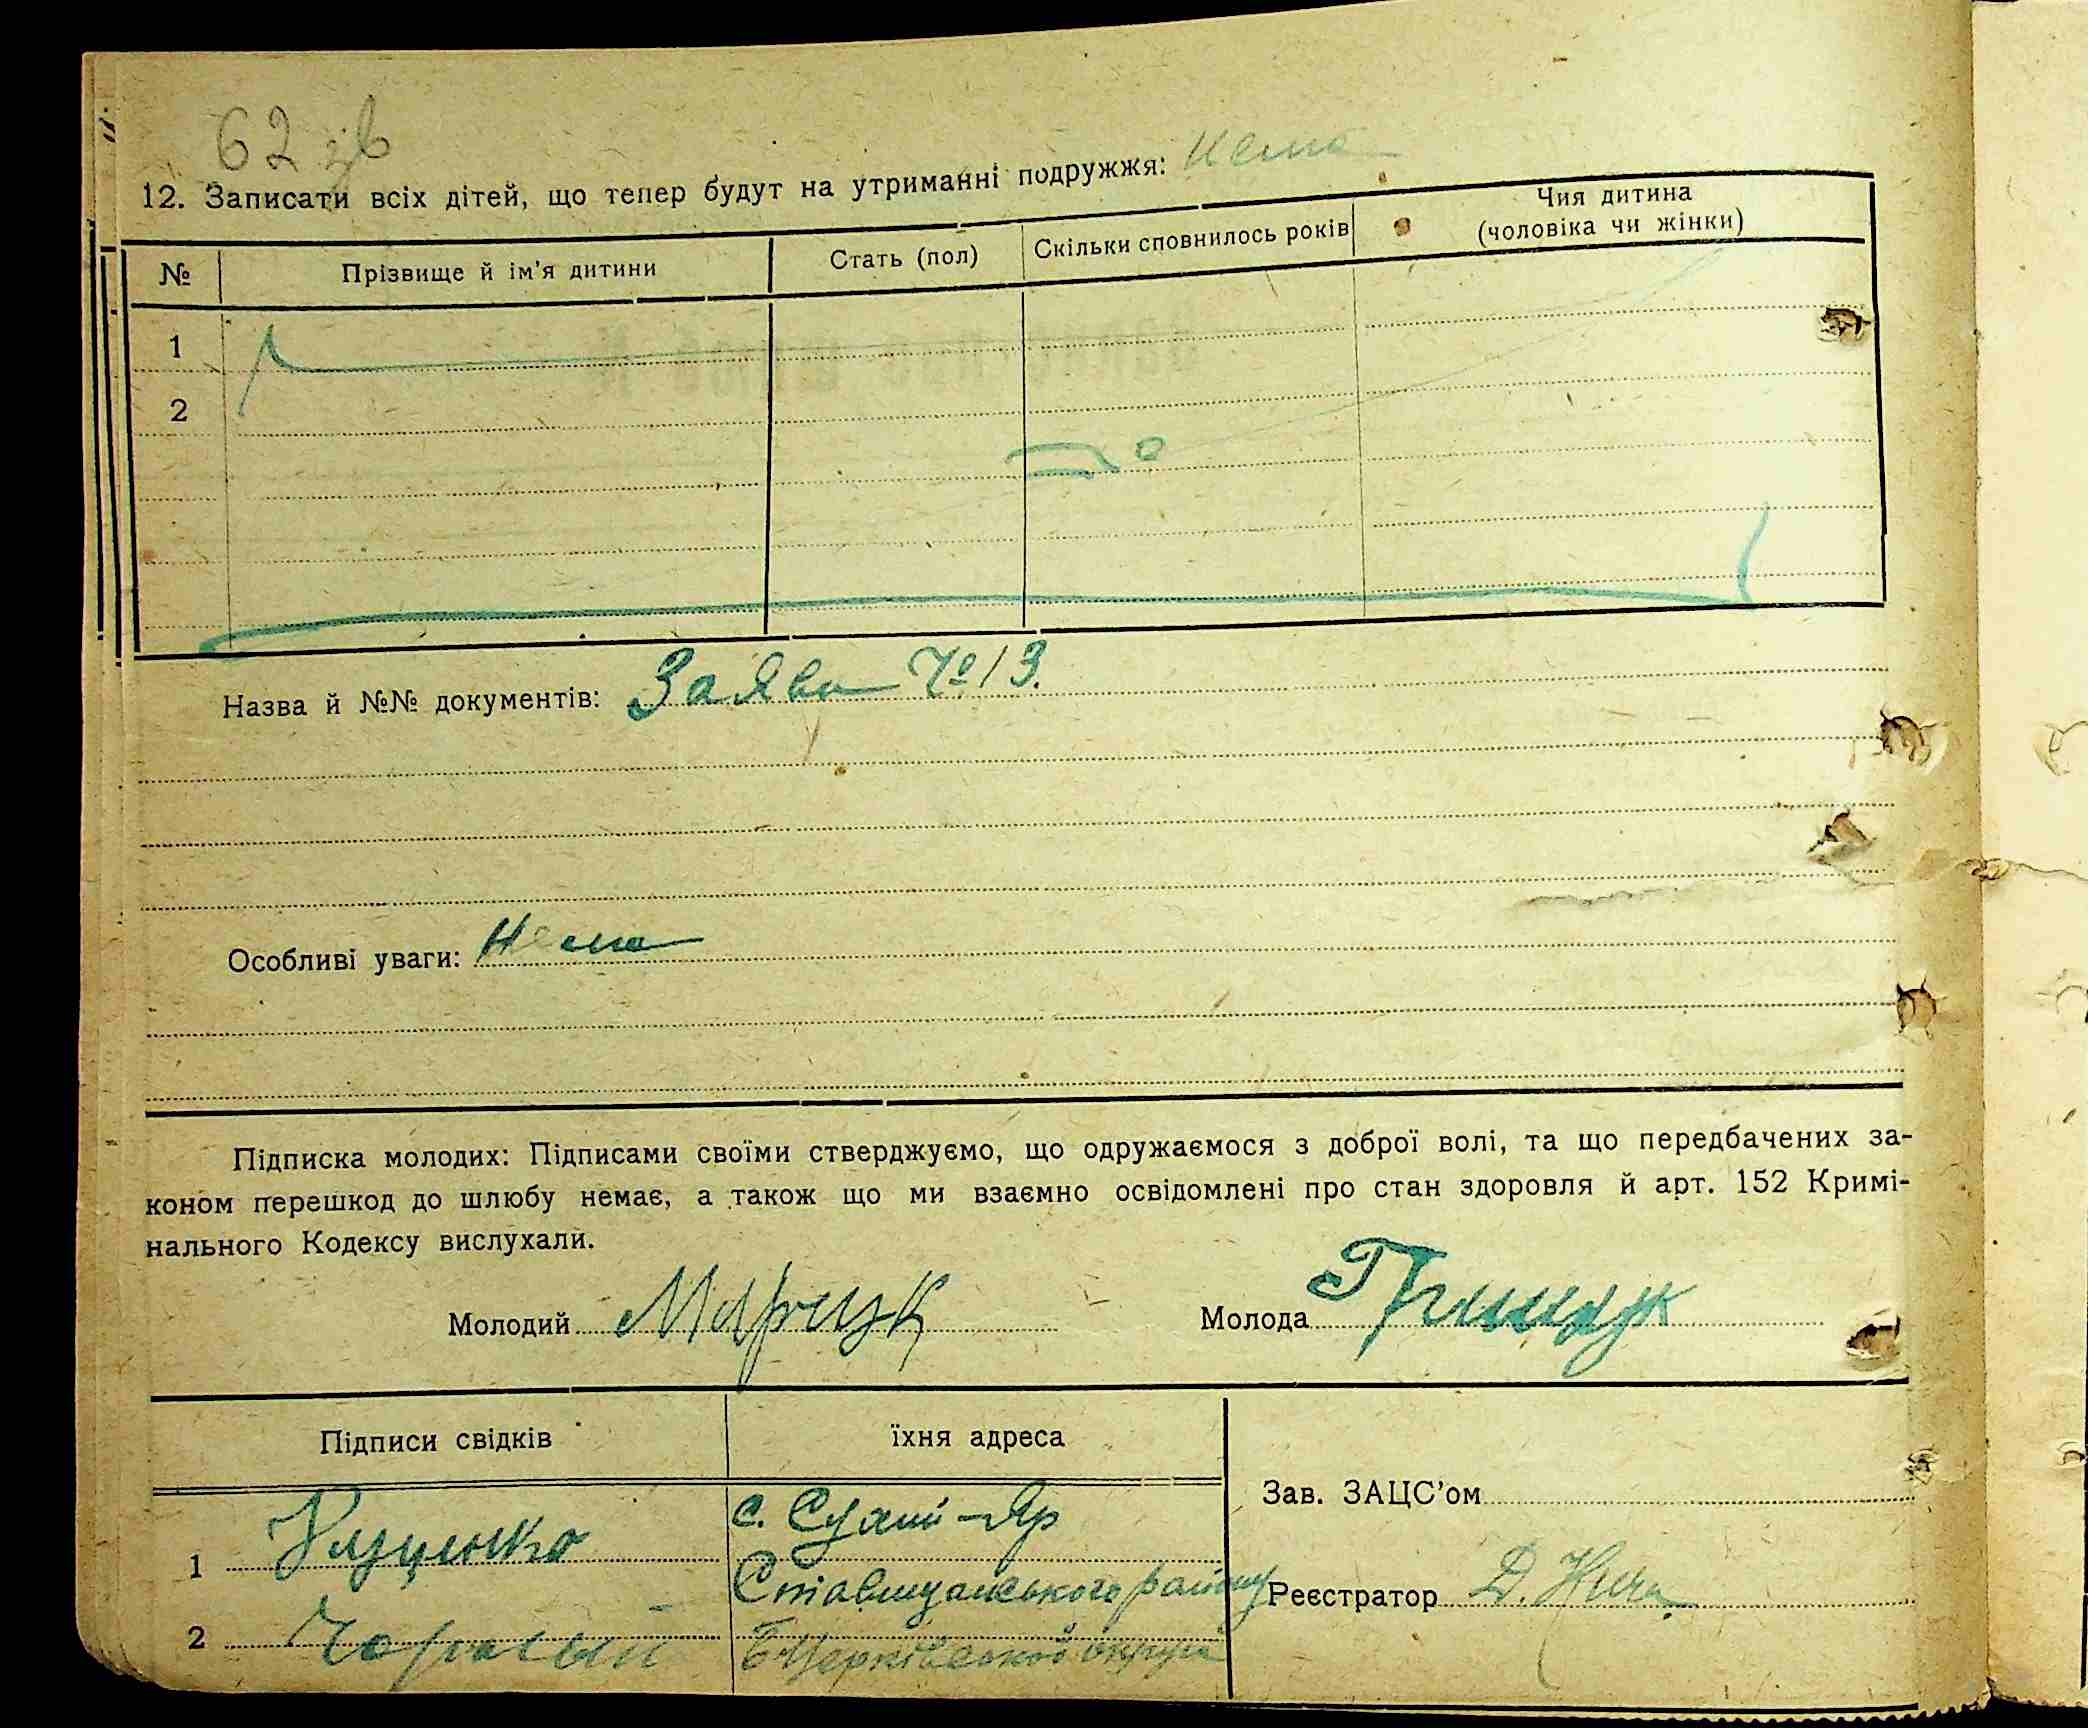 62 зв
12. Записати всіх дітей, що тепер будут на утриманні подружжя: нема
№ Прізвище й ім'я дитини Стать (пол) Скільки сповнилось років Чия дитина (чоловіка чи жінки)
1
2
Назва й №№ документів: Заява № 13.
Особливі уваги: Нема
Підписка молодих: Підписами своїми стверджуємо, що одружаємося з доброї волі, та що передбачених за-
коном перешкод до шлюбу немає, а також що ми взаємно освідомлені про стан здоровля й арт. 152 Кримі-
нального Кодексу вислухали.
Молодий Марчук Молода Грищук
Підписи свідків їхня адреса
Зав. ЗАЦС'ом
с. Сухий-Яр
1
Ставищанського району
Реєстратор Д.
2 БЦерківської округи